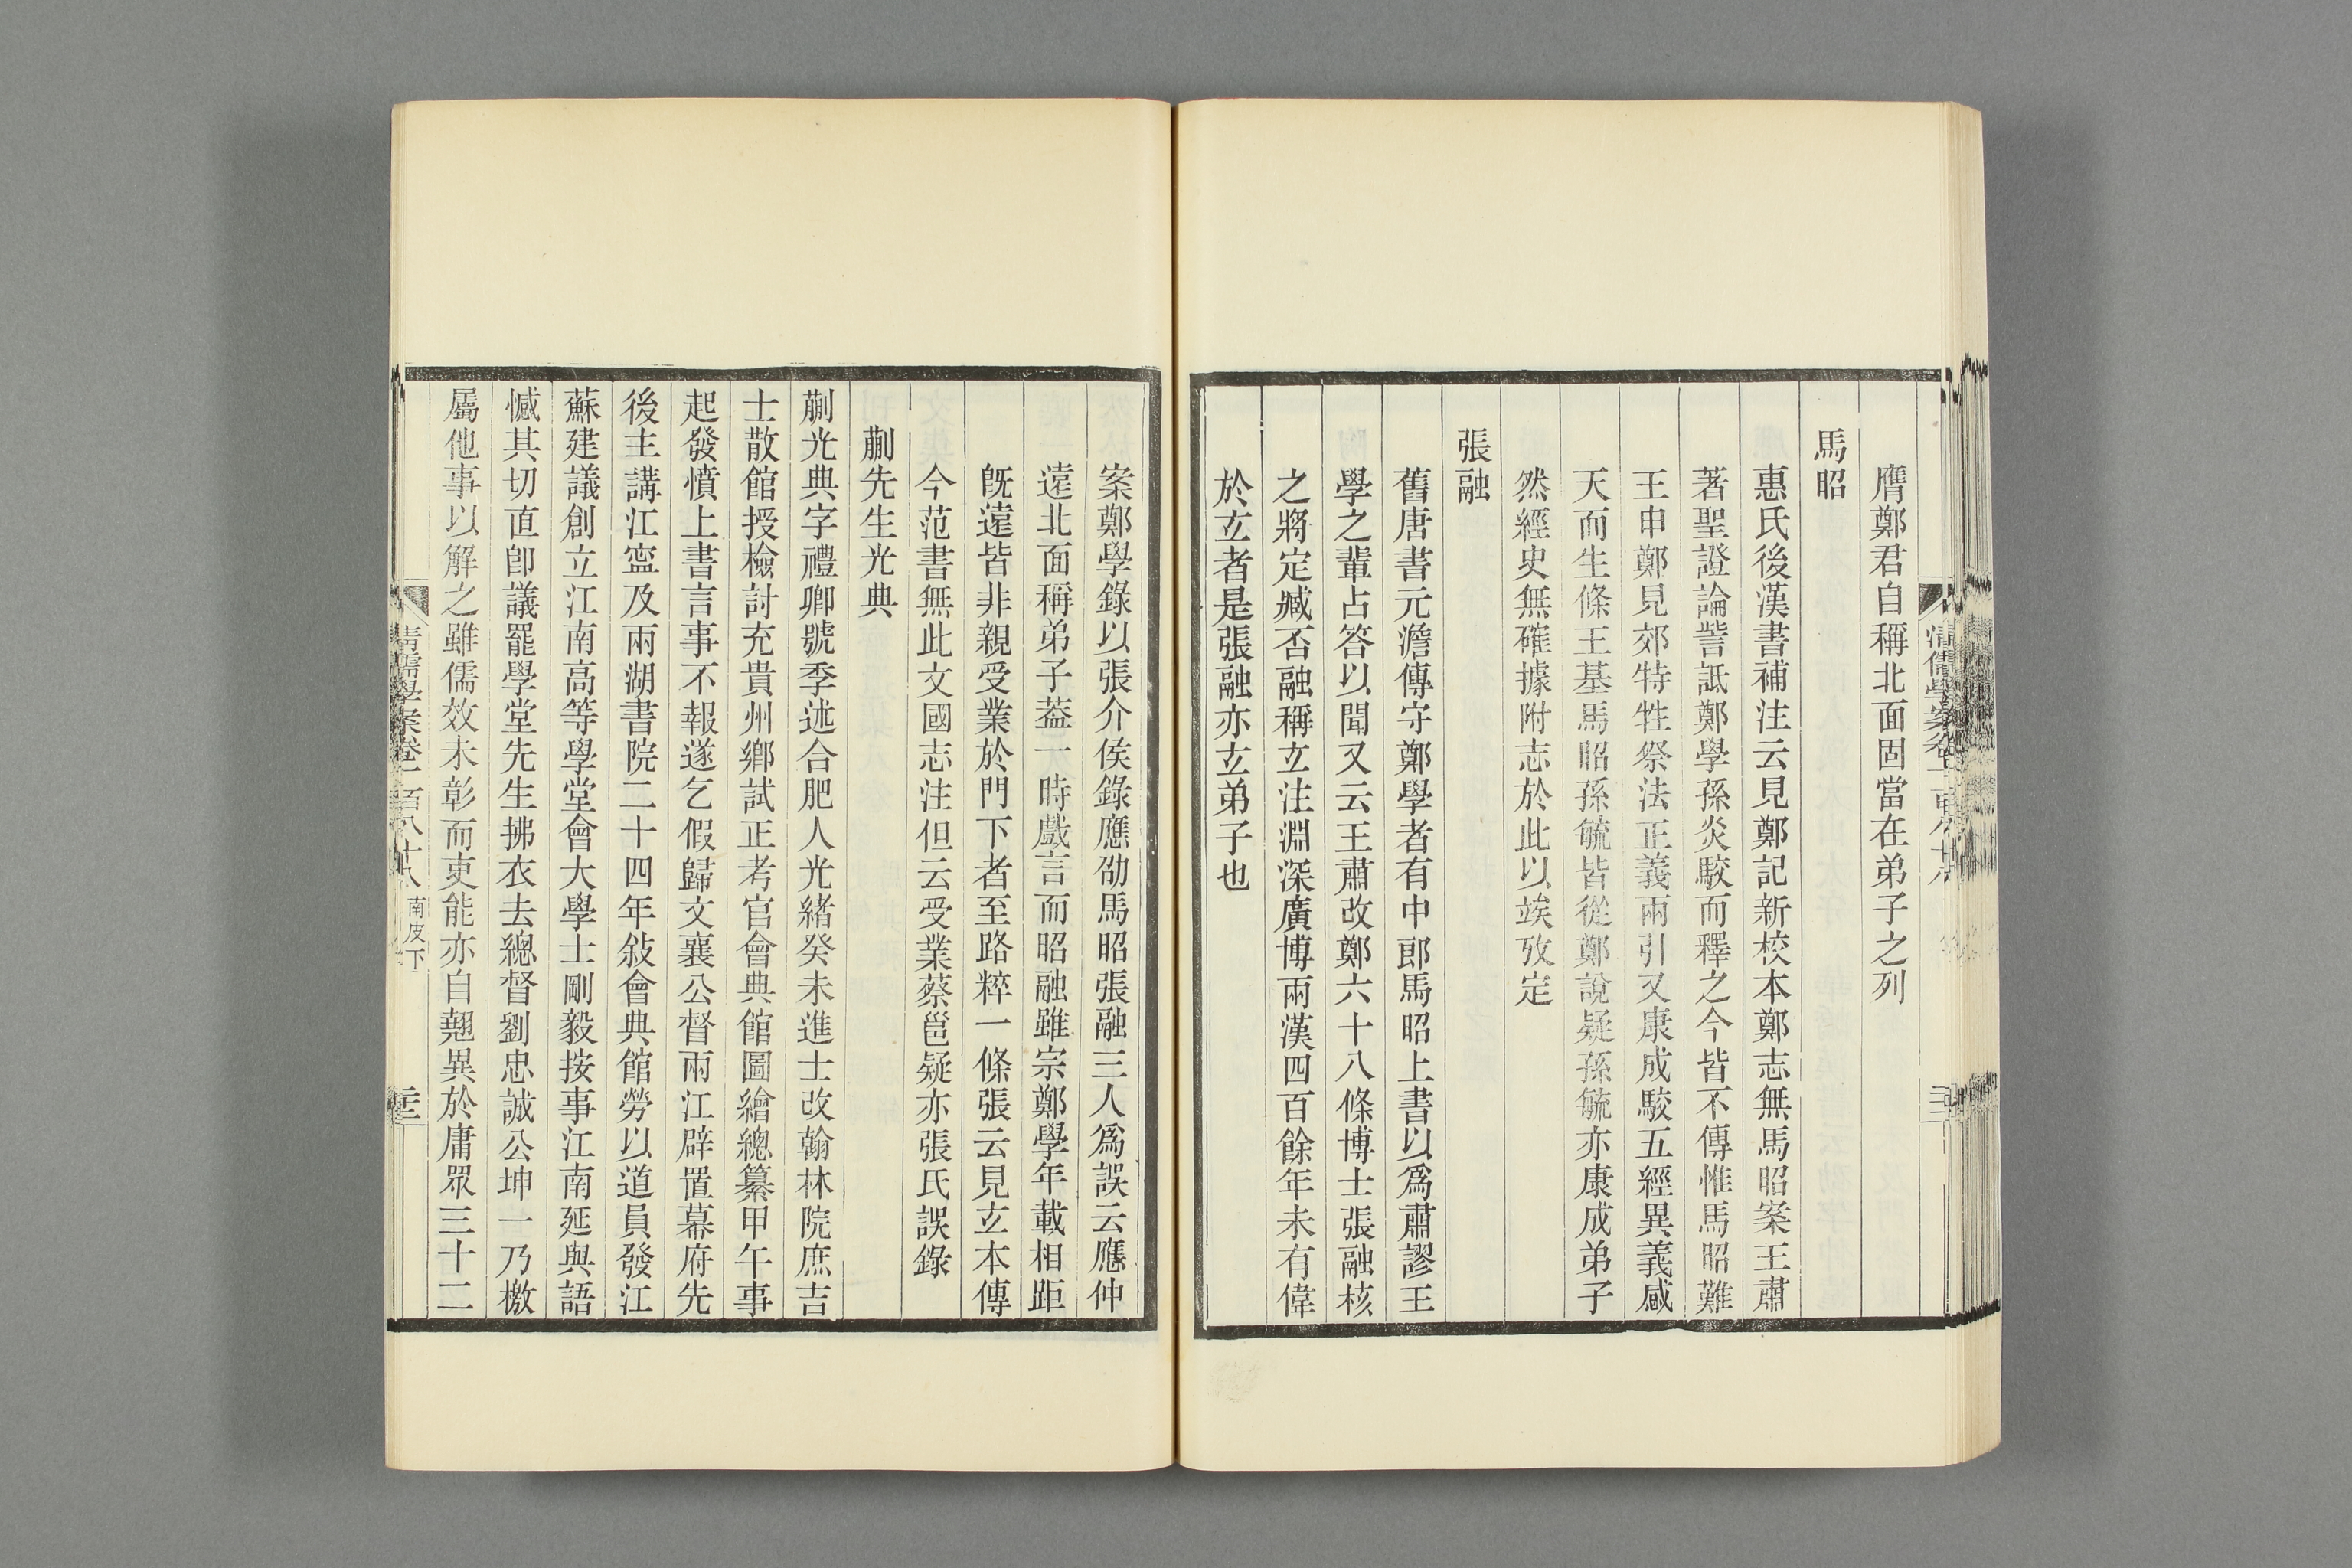 膺鄭君自稱北面固當在弟子之列
馬昭
惠氏後漢書補注云見鄭記新校本鄭志無馬昭案王肅
著聖證論訾詆鄭學孫炎駮而釋之今皆不傳惟馬昭難
王申鄭見郊特牲祭法正義兩引又康成駮五經異義感
天而生條王基馬昭孫毓皆從鄭說疑孫毓亦康成弟子
然經史無確據附志於此以竢攷定
張融
舊唐書元澹傳守鄭學者有中郎馬昭上書以爲肅謬王
學之輩占答以聞又云王肅改鄭六十八條博士張融核
之將定臧否融稱玄注淵深廣博兩漢四百餘年未有偉
於玄者是張融亦玄弟子也
案鄭學錄以張介侯錄應劭馬昭張融三人爲誤云應仲
遠北面稱弟子葢一時戲言而昭融雖宗鄭學年載相距
旣遠皆非親受業於門下者至路粹一條張云見玄本傳
今范書無此文國志注但云受業蔡邕疑亦張氏誤錄
蒯先生光典
蒯光典字禮卿號季述合肥人光緒癸未進士改翰林院庶吉
士散館授檢討充貴州鄉試正考官會典館圖繪總纂甲午事
起發憤上書言事不報遂乞假歸文襄公督兩江辟置幕府先
後主講江寍及兩湖書院二十四年敍會典館勞以道員發江
蘇建議創立江南高等學堂會大學士剛毅按事江南延與語
憾其切直卽議罷學堂先生拂衣去總督劉忠誠公坤一乃檄
屬他事以解之雖儒效未彰而吏能亦自翹異於庸眾三十二
清儒學案卷一百八十八 南皮下